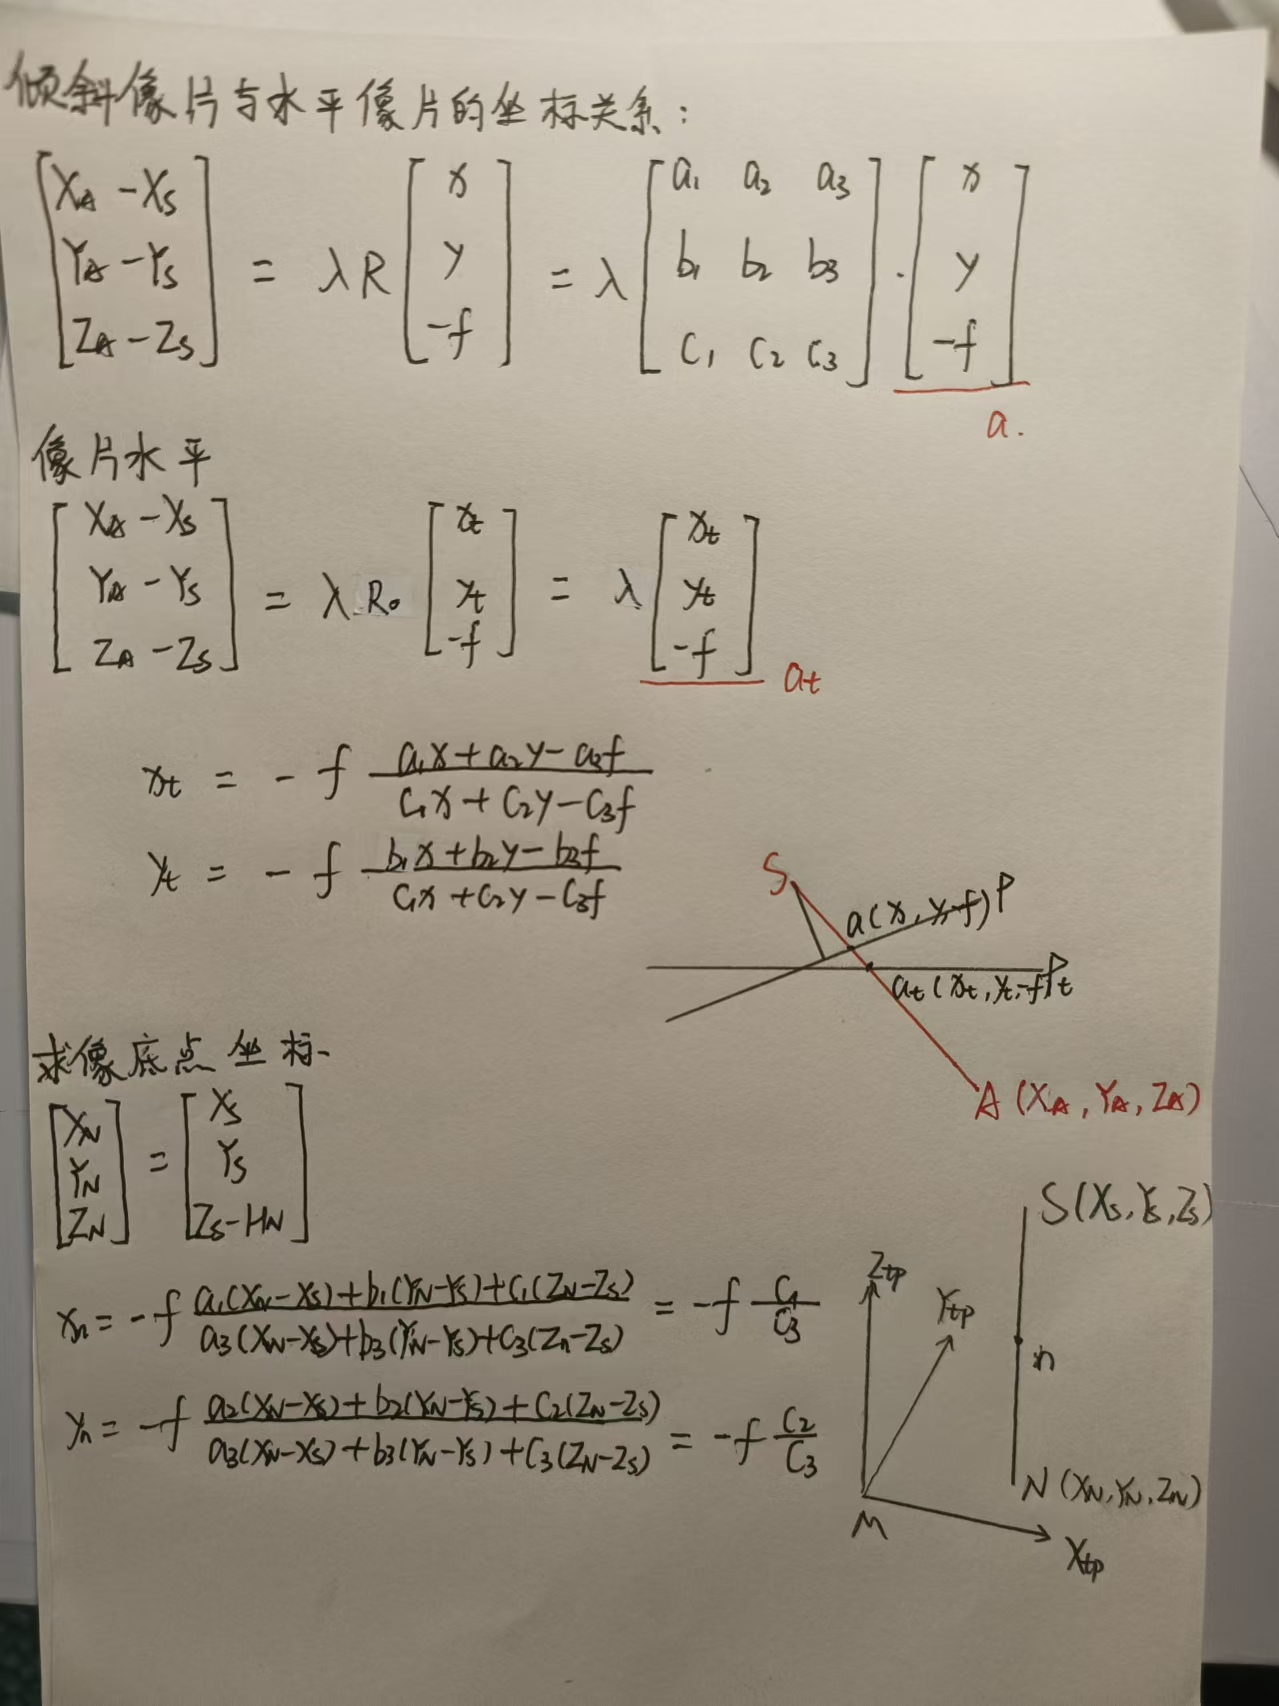 倾斜像片与水平像片的坐标关系:
[X_A - X_S; Y_A - Y_S; Z_A - Z_S] = λR [x; y; -f] = λ [a₁ a₂ a₃; b₁ b₂ b₃; c₁ c₂ c₃] · [x; y; -f]
a.
像片水平
[X_A - X_S; Y_A - Y_S; Z_A - Z_S] = λR₀ [x_t; y_t; -f] = λ [x_t; y_t; -f]
a_t
x_t = -f (a₁x + a₂y - a₃f)/(c₁x + c₂y - c₃f)
y_t = -f (b₁x + b₂y - b₃f)/(c₁x + c₂y - c₃f)
S
a(x, y, -f) P
a_t(x_t, y_t, -f) P_t
A (X_A, Y_A, Z_A)
求像底点坐标.
[X_N; Y_N; Z_N] = [X_S; Y_S; Z_S - H_N]
x_n = -f (a₁(X_N - X_S) + b₁(Y_N - Y_S) + c₁(Z_N - Z_S))/(a₃(X_N - X_S) + b₃(Y_N - Y_S) + c₃(Z_n - Z_S)) = -f c₁/c₃
y_n = -f (a₂(X_N - X_S) + b₂(Y_N - Y_S) + c₂(Z_N - Z_S))/(a₃(X_N - X_S) + b₃(Y_N - Y_S) + c₃(Z_N - Z_S)) = -f c₂/c₃
S(X_S, Y_S, Z_S)
Z_tp
Y_tp
n
N (X_N, Y_N, Z_N)
M
X_tp